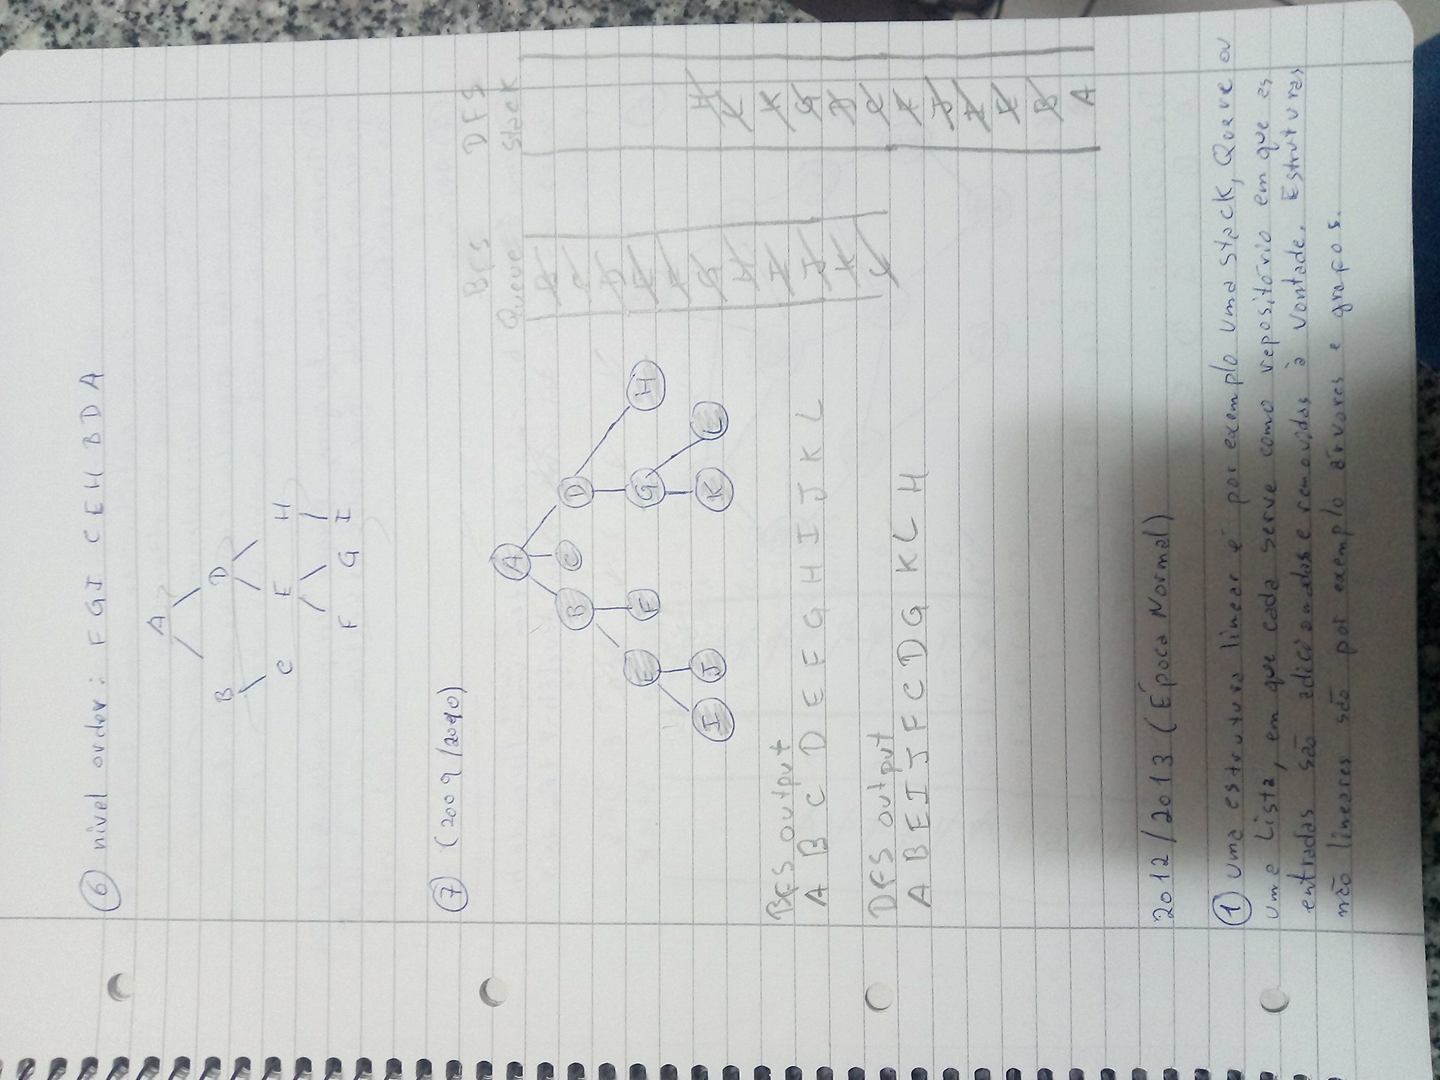 6 nível order: F G I C E H B D A
A
B D
C E H
F G I
7 (2009/2010)
A
B C D
E F G H
I J K L
BFS
Queue
B
C
D
E
F
G
H
I
J
K
L
DFS
stack
H
L
K
G
D
C
F
J
I
E
B
A
BFS output
A B C D E F G H I J K L
DFS output
A B E I J F C D G K L H
2012/2013 (Época Normal)
1 Uma estrutura linear é por exemplo uma stack, Queue ou
uma Lista, em que cada serve como repositório em que as
entradas são adicionadas e removidas à vontade. Estruturas
não lineares são por exemplo árvores e grafos.